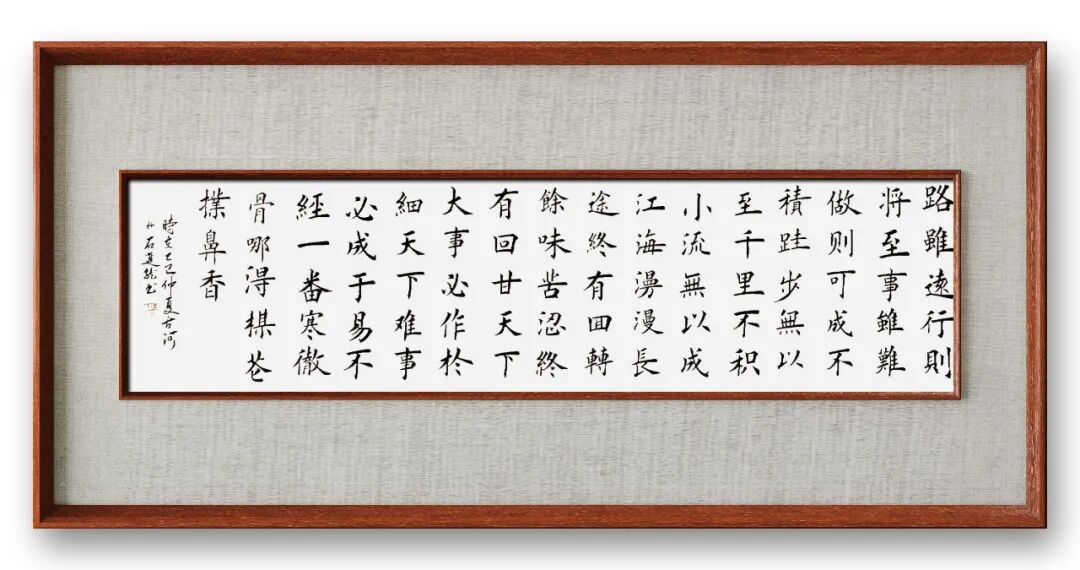 路雖遠行則
将至事雖難
做则可成不
積跬步無以
至千里不积
小流無以成
江海漫漫長
途終有回轉
餘味苦忍終
有回甘天下
大事必作於
細天下难事
必成于易不
經一番寒徹
骨哪得楳花
撲鼻香
時在乙巳仲夏古河
石書